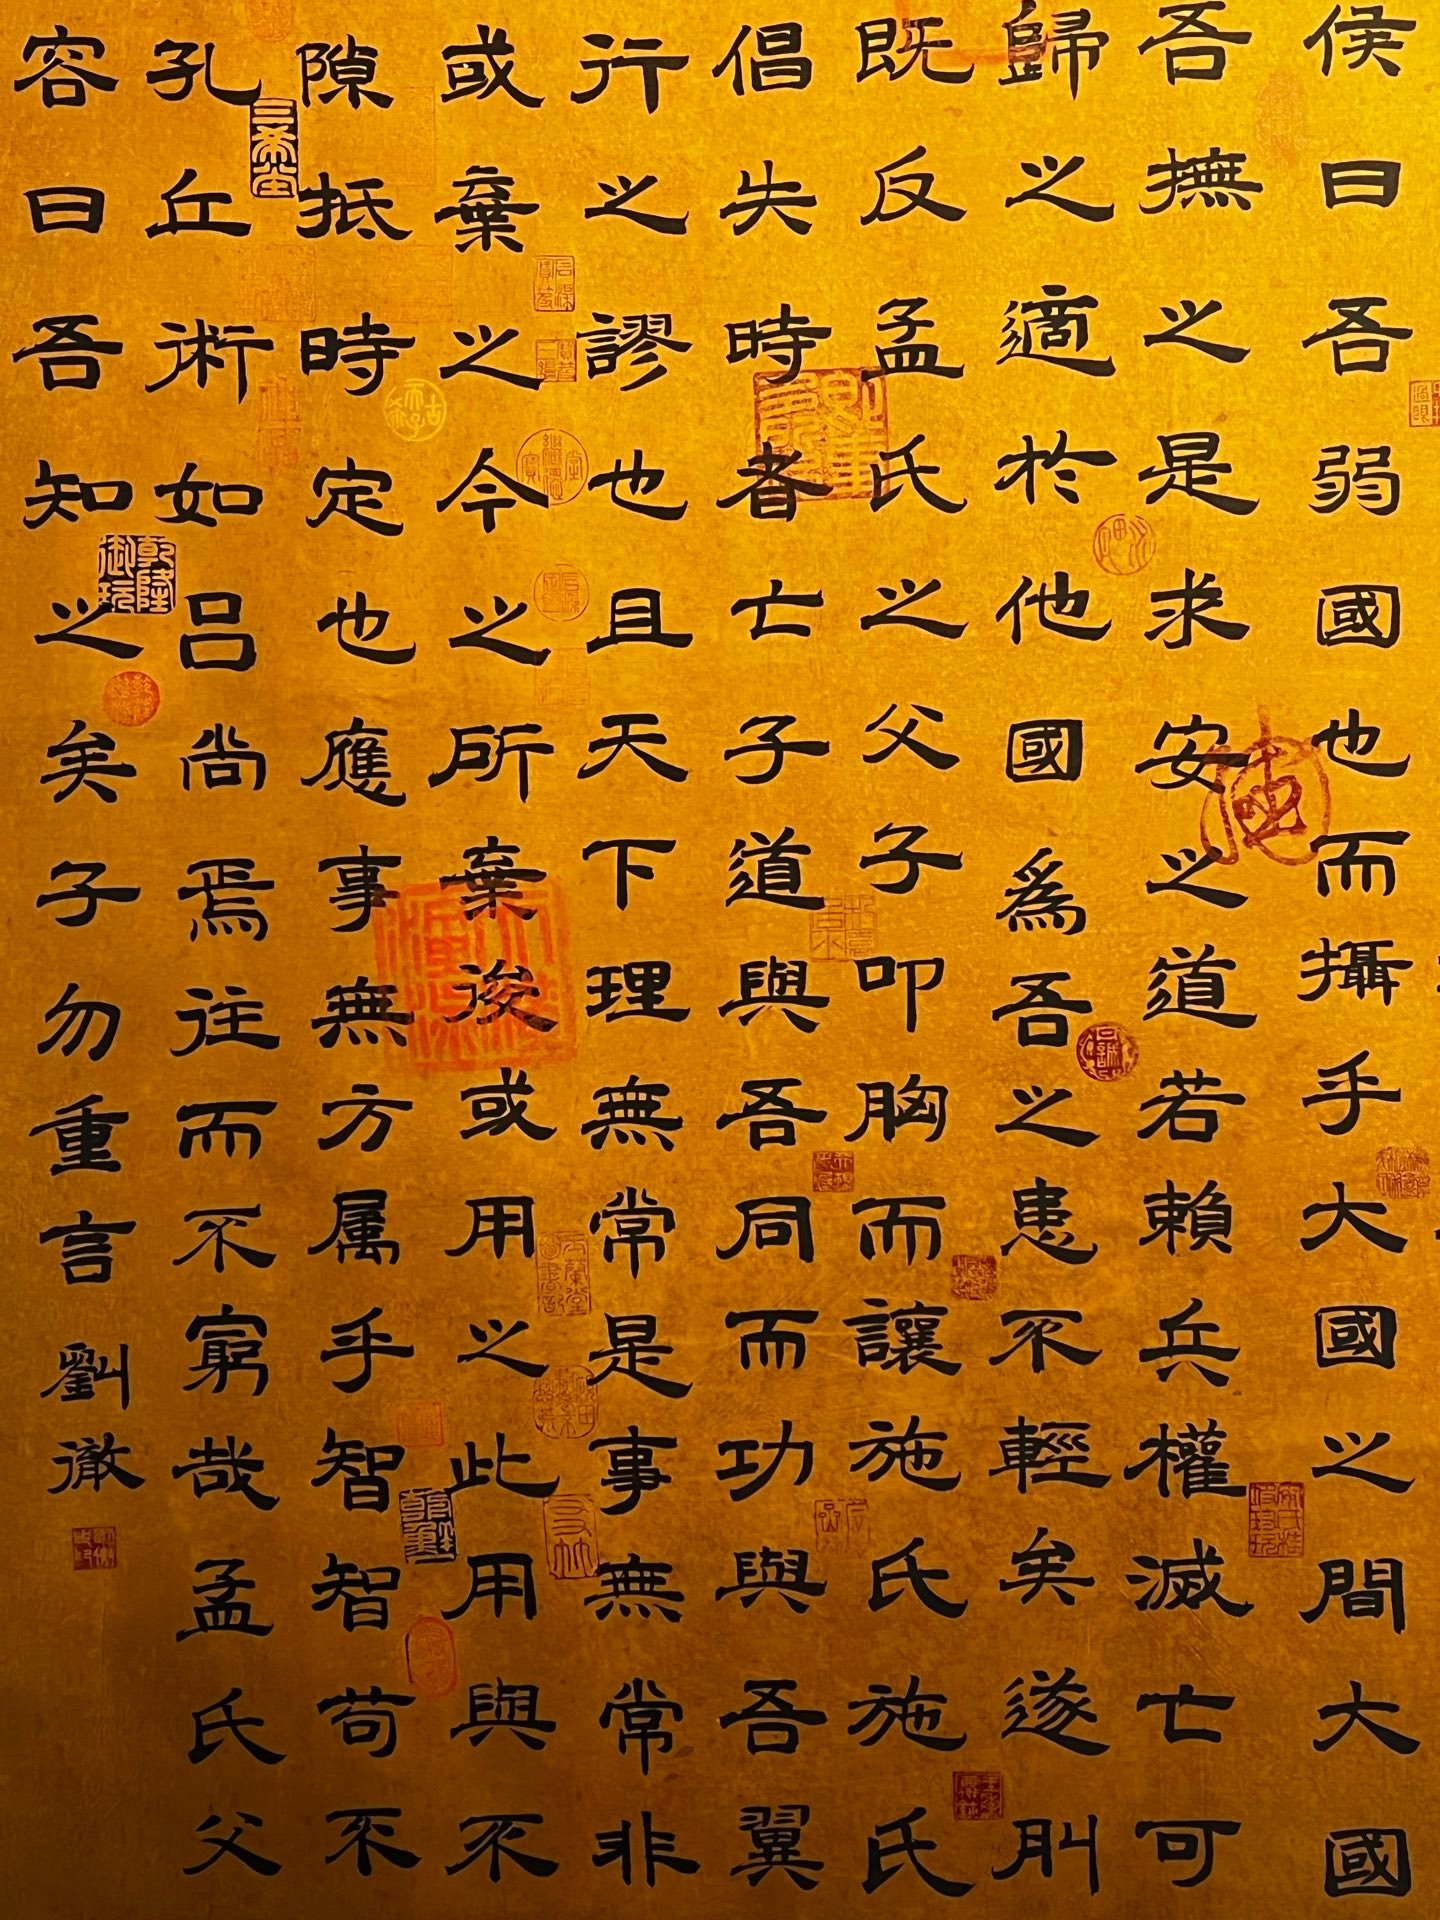 侯曰吾弱國也而攝乎大國之間大國
吾撫之是求安之道若賴兵權滅亡可
歸之適於他國爲吾之患不輕矣遂刖
既反孟氏之父子叩胸而讓施氏施氏
倡失時者亡子道與吾同而功與吾翼
行之謬也且天下理無常是事無常非
或棄之今之所棄後或用之此用與不
隙抵時定也應事無方属乎智智苟不
孔丘術如呂尚焉往而不窮哉孟氏父
容曰吾知之矣子勿重言劉徹
三希堂
乾隆御玩